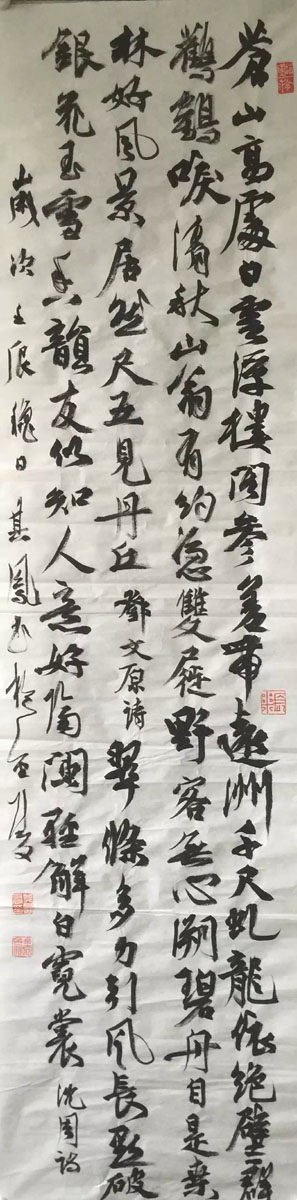 蒼山高處白雲浮樓閣參差帶遠洲千尺虬龍依絕壁一群
鸛鶴唳清秋山翁有約急雙屐野客無心溯碧丹自是桑
林好風景居然尺五見丹丘 鄧文原詩 翠條多力引風長點破
銀花玉雪香韻友似知人意好隔闌輕解白霓裳 沈周詩
歲次壬辰穐日其鳳书於广西